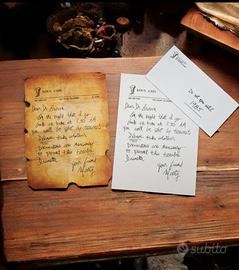 LOU'S CAFE
Dear Dr. Brown,
On the night that I go
back in time at 1:30 AM
you will be shot by terrorists
Please take whatever
precautions are necessary
to prevent this terrible
Disaster
Your friend
Marty
LOU'S CAFE
Dear Dr. Brown,
On the night that I go
back in time at 1:30 AM
you will be shot by terrorists
Please take whatever
precautions are necessary
to prevent this terrible
Disaster
Your friend
Marty
Do not open until
1985
subito